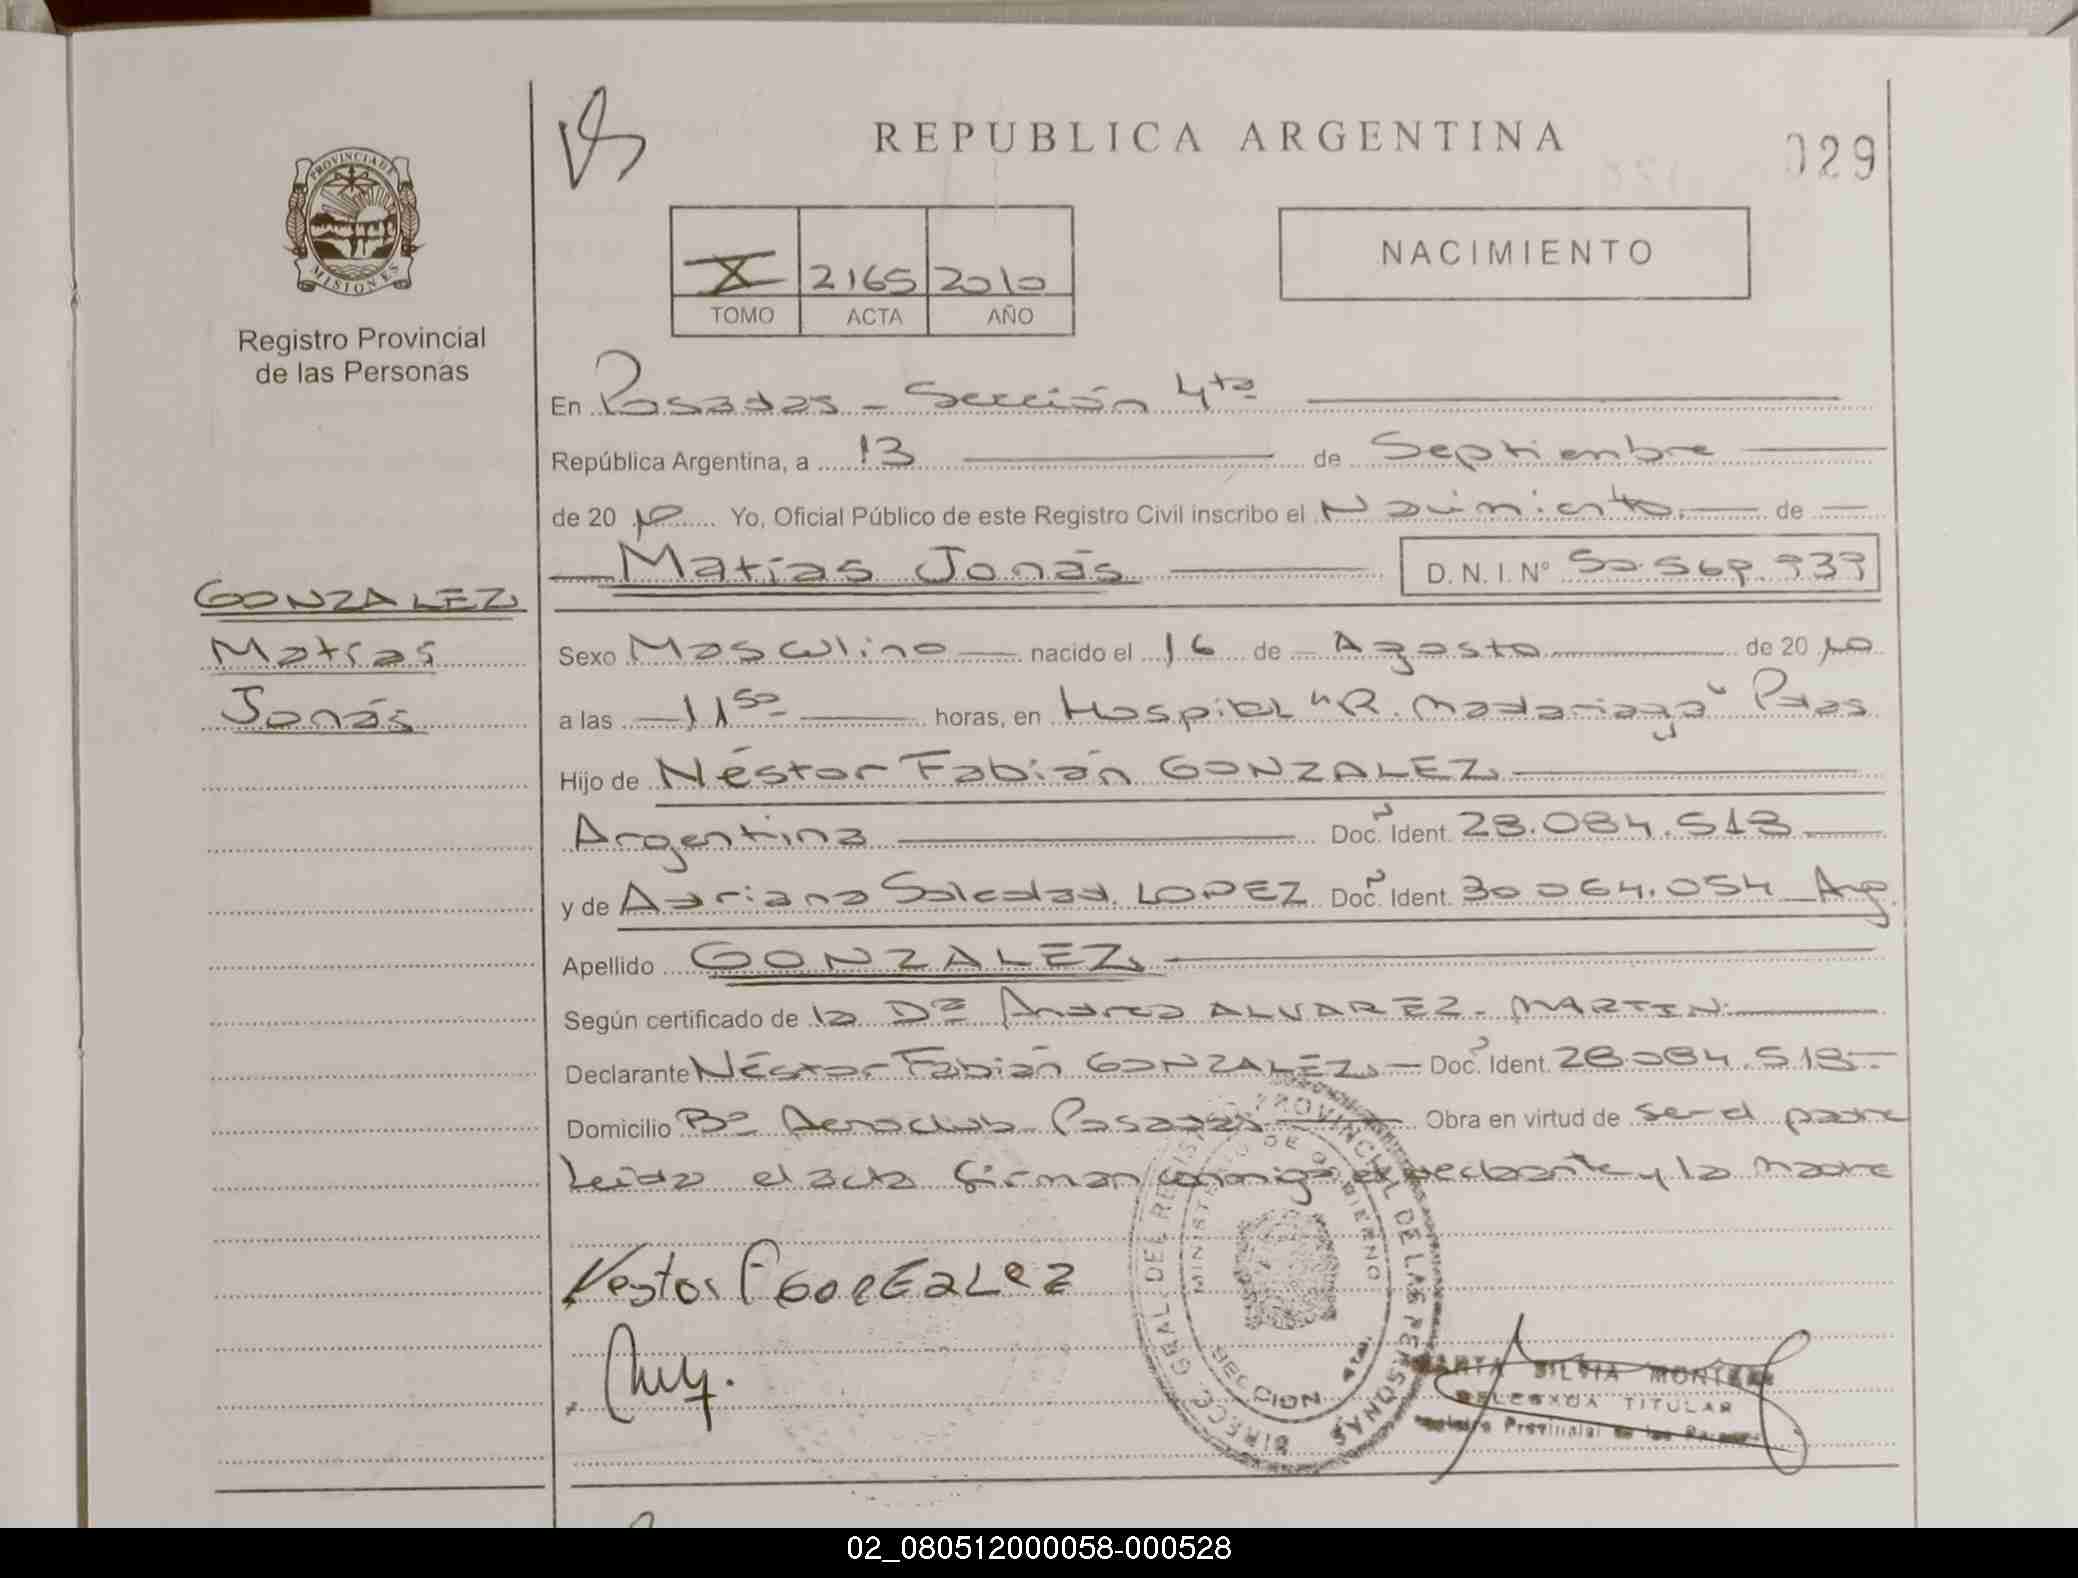 REPUBLICA ARGENTINA
029
PROVINCIA DE
MISIONES
Registro Provincial
de las Personas
X 2165 2010
TOMO ACTA AÑO
NACIMIENTO
En Posadas - Sección 4ta
República Argentina, a 13 de Septiembre
de 2010 Yo, Oficial Público de este Registro Civil inscribo el Nacimiento de
Matías Jonás D.N.I. Nº 50.569.939
GONZALEZ
Matías
Jonás
Sexo Masculino nacido el 16 de Agosto de 2010
a las 11 50 horas, en Hospital "R. Madariaga" Pdas
Hijo de Néstor Fabián GONZALEZ
Argentina Doc. Ident. 28.084.518
y de Adriana Soledad LOPEZ Doc. Ident. 30.064.054 Arg.
Apellido GONZALEZ
Según certificado de la Dra Andrea ALVAREZ - MARTIN
Declarante Néstor Fabián GONZALEZ Doc. Ident. 28.084.518
Domicilio Bº Aeroclub Posadas Obra en virtud de ser el padre
Leida el acta firman conmigo el declarante y la madre
Nestor F Gonzalez
DIRECC. GRAL. DEL REGISTRO PROVINCIAL DE LAS PERSONAS
MINISTERIO DE GOBIERNO
SECCION 4ta.
MARTA SILVIA
DELEGADA TITULAR
Registro Provincial de las Personas
02_080512000058-000528